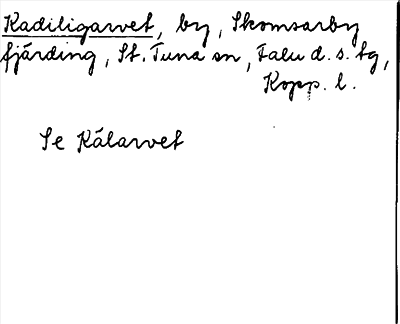 Kadiligarvet, by, Skomsarby
fjärding, St. Tuna sn, Falu d. s. tg,
Kopp. l.
Se Kålarvet